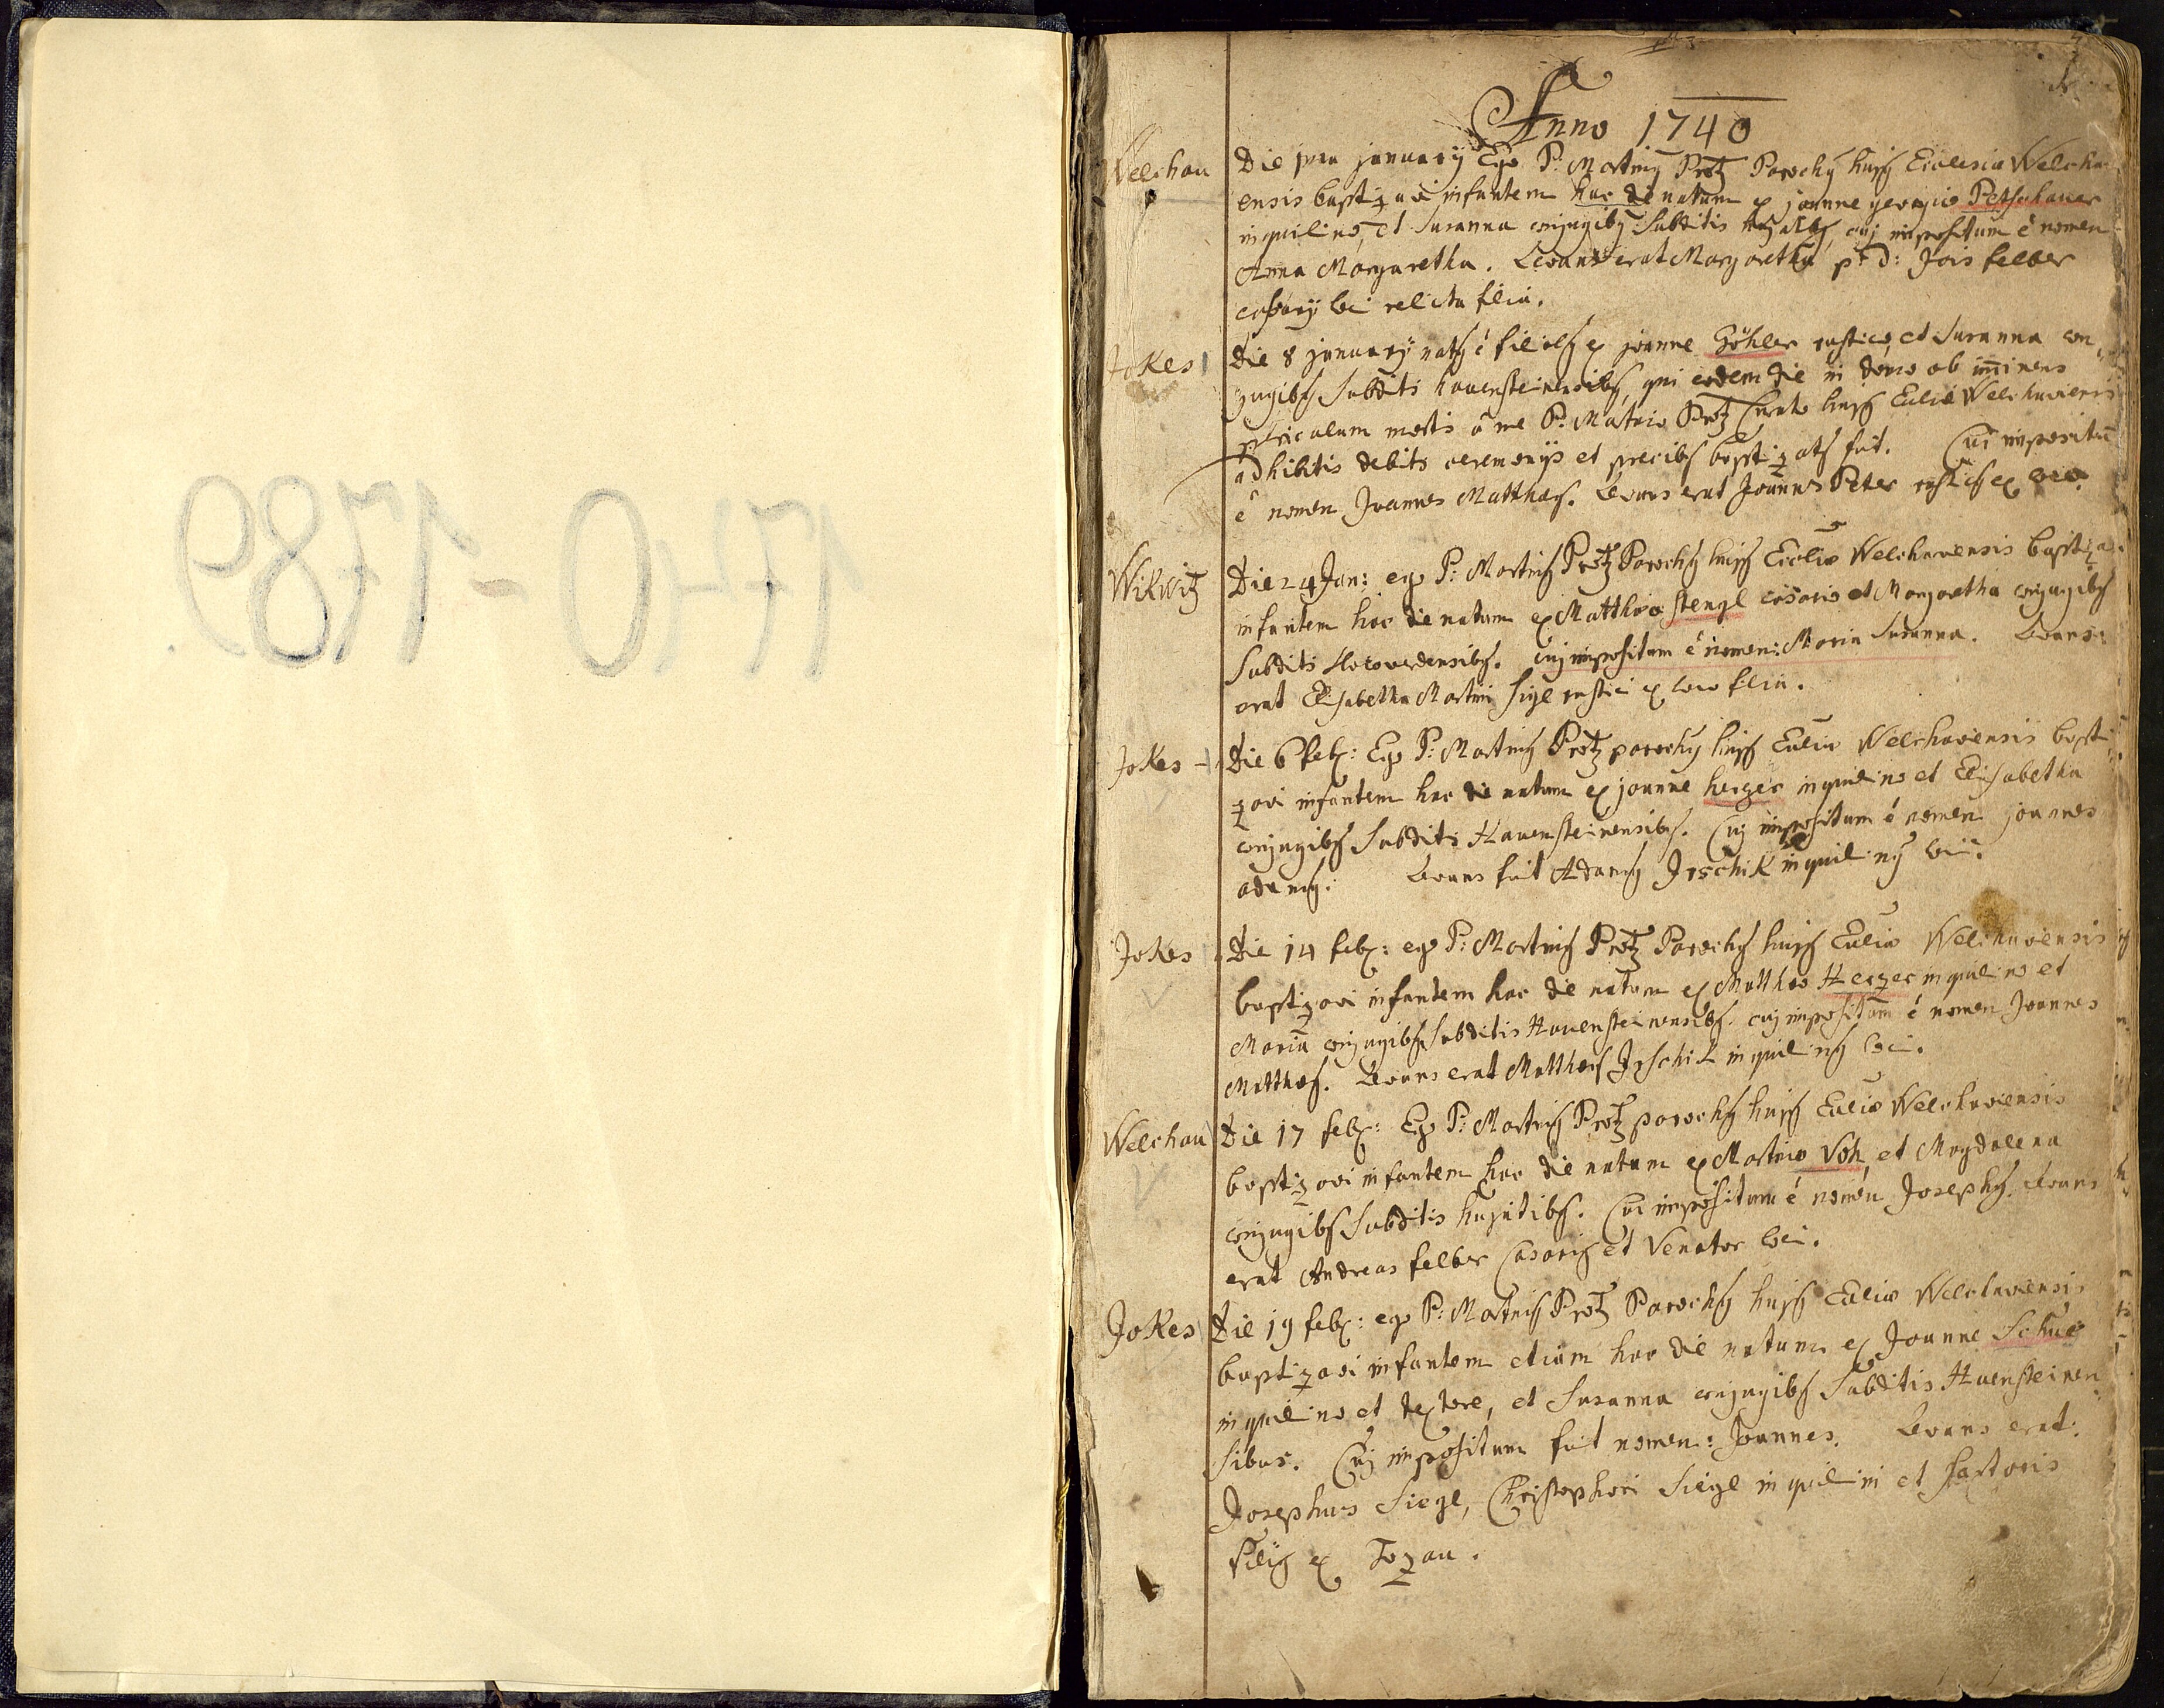 1740 - 1789.
Anno 1740
Welchau
Die 1ma january Ego P: Martinꝰ Protz Parochꝰ hujꝰ Ecclesiæ Welcha-
ensis baptizavi infantem hac die natum ex joanne georgio Petschauer
inquilino, et Susanna conjugibꝰ Subditis cui impositum ē nomen
Anna Margaretha. Levans erat Margaretha p: d: Jois felber
casarij loci relicta filia.
Jokes
Die 8 january natꝰ ē filiolꝰ ex joanne Göhler rustico, et Susanna con-
jugibꝰ Subditis hauensteinensibꝰ, qui eodem die in domo ob iminens
periculum mortis a me P: Martino Protz Curato hujꝰ Eccliæ Welchaviensis
adhibitis debitis ceremonijs et precibꝰ baptizatꝰ fuit. Cui impositū
ē nomen Joannes Matthæꝰ. Levans erat Joannes Peter rusticꝰ ex loco.
Wikwitz
Die 24 Jan: ego P: Martinꝰ Protz Parochꝰ hujꝰ Eccliæ Welchauensis baptiza-
infantem hac die natum ex Matthæo Stengl casario et Margaretha conjugibꝰ
Subditis cuj impositum ē nomen: Maria Susanna. Levans
erat Elisabetha Martini Sigl rustici ex loco filia.
Jokes -
Die 6 feb: Ego P: Martinꝰ Protz parochꝰ hujꝰ Eccliæ Welchaviensis bapti-
zavi infantem hac die natum ex joanne herzer inquilino et Elisabetha
conjugibꝰ Subditis Hauensteinensibꝰ. Cuj impositum ē nomen joannes
adamꝰ. Levans fuit Adamꝰ Irschik inquilinꝰ loci.
Jokes
Die 14 feb: ego P: Martinꝰ Protz Parochꝰ hujꝰ Eccliæ Welchaviensis
baptizavi infantem hac die natum ex Matthæo Herzer inquilino et
Maria conjugibꝰ Subditis Hauensteinensibꝰ. cuj impositum ē nomen Joannes
Matthæꝰ. Levans erat Matthæꝰ Irschik inquilinꝰ loci.
Welchau
Die 17 feb: Ego P: Martinꝰ Protz parochꝰ hujꝰ Eccliæ Welchaviensis
baptizavi infantem hac die natum ex Martino Voh, et Magdalena
conjugibꝰ Subditis hujatibꝰ. Cui impositum ē nomen Josephꝰ. Levans
erat Andreas felber Casariꝰ et Venator loci.
Jokes
Die 19 feb: ego P: Martinꝰ Protz Parochꝰ hujꝰ Eccliæ Welchaviensis
baptizavi infantem etiam hac die natum ex Joanne Schue
inquilino et textore, et Susanna conjugibꝰ Subditis Hauensteinen-
sibus. Cuj impositum fuit nomen: Joannes. Levans erat:
Josephus Siegl, Christophori Siegl inquilini et Sartoris
filiꝰ ex Tozau.